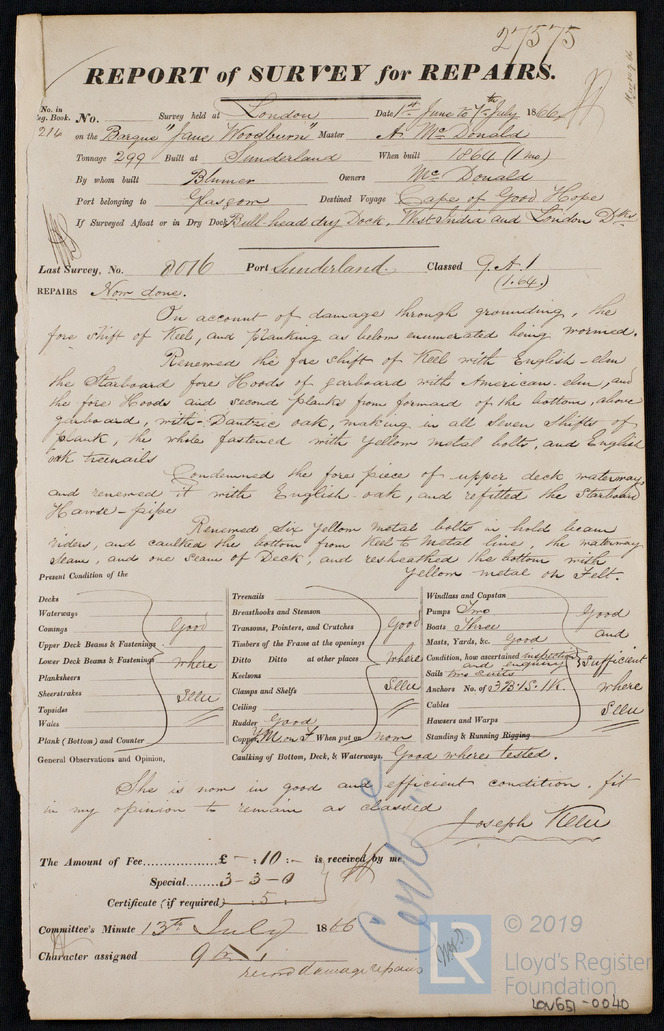 27575
REPORT of SURVEY for REPAIRS.
No. in Reg. Book. No. Survey held at London Date 1st June to 7th July 1866
216 on the Barque "Jane Woodburn" Master A. McDonald
Tonnage 299 Built at Sunderland When built 1864 (1 mo)
By whom built Blumer Owners McDonald
Port belonging to Glasgow Destined Voyage Cape of Good Hope
If Surveyed Afloat or in Dry Dock Bull-head dry Dock, West India and London Dks
Last Survey, No. 8016 Port Sunderland. Classed 9.A.1
(1.64.)
REPAIRS Now done.
On account of damage through grounding, the
fore shift of Keel, and planking as below enumerated being wormed.
Renewed the fore shift of Keel with English-elm
the Starboard fore Hoods of garboard with American-elm, and
the fore Hoods and second planks from forward of the bottom, above
garboard, with Dantzic oak, making in all seven shifts of
plank, the whole fastened with yellow metal bolts, and English
oak treenails
Condemned the fore piece of upper deck waterway
and renewed it with English-oak, and refitted the Starboard
Hawse-pipe
Renewed six yellow metal bolts in hold beam
riders, and caulked the bottom from Keel to Metal line the waterway
seam, and one seam of Deck, and resheathed the bottom with
yellow metal on Felt.
Present Condition of the
Decks
Waterways
Comings
Upper Deck Beams & Fastenings
Lower Deck Beams & Fastenings
Planksheers
Sheerstrakes
Topsides
Wales
Plank (Bottom) and Counter
Good
where
Seen
Treenails
Breasthooks and Stemson
Transoms, Pointers, and Crutches
Timbers of the Frame at the openings
Ditto Ditto at other places
Keelsons
Clamps and Shelfs
Ceiling
Good
where
Seen
Rudder Good
Copper Y.M. on F When put on now
Windlass and Capstan
Pumps Two
Boats Three
Masts, Yards, &c. Good
Condition, how ascertained inspection
and enquiry
Sails two suits
Anchors No. of 3B.1S.1K.
Cables
Hawsers and Warps
Standing & Running Rigging
Good
and
Sufficient
where
Seen
General Observations and Opinion, Caulking of Bottom, Deck, & Waterways. Good where tested.
She is now in good and efficient condition. fit
in my opinion to remain as classed
Joseph Keen
The Amount of Fee £ - : 10 : - is received by me,
Special 3-3-0
Certificate (if required) - : 5 : -
Committee's Minute 13th July 1866
Character assigned 9 A 1
record damage repairs
© 2019
LR
Lloyd's Register
Foundation
LON651-0040